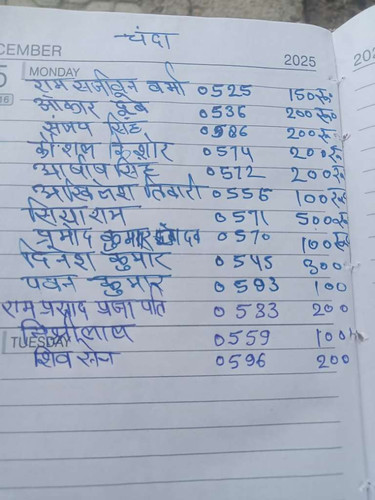 चंदा
CEMBER 2025
MONDAY
राम सजीवन वर्मा 0525 150रु०
ओंकार देव 0536 200रु०
संजय सिंह 0586 200रु०
कौशल किशोर 0574 200रु०
आशीष सिंह 0572 200रु०
अखिलेश तिवारी 0556 100रु०
सियाराम 0571 500रु०
प्रमोद कुमार यादव 0570 100रु०
दिनेश कुमार 0545 300
पवन कुमार 0593 100
राम प्रसाद प्रजापति 0583 200
0559 100
TUESDAY
शिव सेन 0596 200